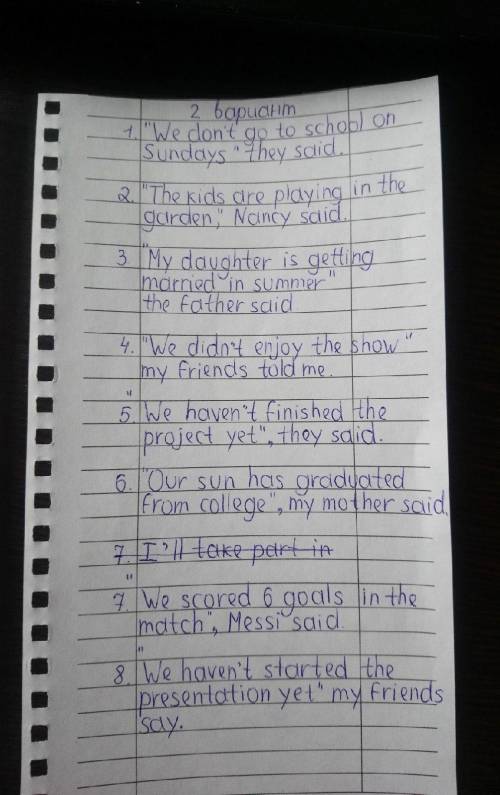 2 вариант
1. "We don't go to school on
Sundays" they said.
2. "The kids are playing in the
garden," Nancy said.
3. "My daughter is getting
married in summer"
the father said
4. "We didn't enjoy the show"
my friends told me.
5. "We haven't finished the
project yet", they said.
6. "Our sun has graduated
from college", my mother said.
7. I'll take part in
7. "We scored 6 goals in the
match", Messi said.
8. "We haven't started the
presentation yet" my friends
say.